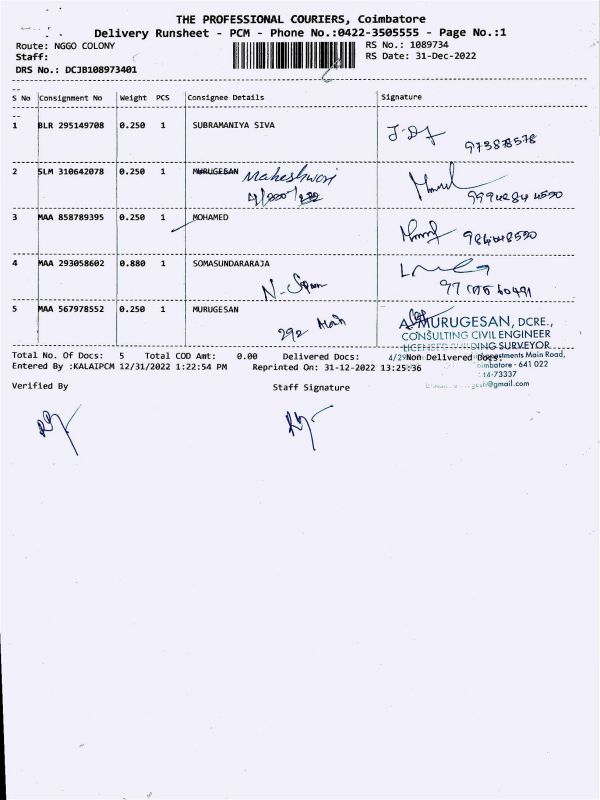 THE PROFESSIONAL COURIERS, Coimbatore
Delivery Runsheet - PCM - Phone No.:0422-3505555 - Page No.:1
Route: NGGO COLONY
RS No.: 1089734
Staff:
RS Date: 31-Dec-2022
DRS No.: DCJB108973401
S No Consignment No Weight PCS Consignee Details Signature
1 BLR 295149708 0.250 1 SUBRAMANIYA SIVA
2 SLM 310642078 0.250 1 MURUGESAN Maheshwori
3 MAA 858789395 0.250 1 MOHAMED
4 MAA 293058602 0.880 1 SOMASUNDARARAJA
5 MAA 567978552 0.250 1 MURUGESAN
292 Main
A. MURUGESAN, DCRE.,
CONSULTING CIVIL ENGINEER
LICENSED BUILDING SURVEYOR
Total No. Of Docs: 5 Total COD Amt: 0.00 Delivered Docs: 4/29 Non Delivered Docs:
Main Road,
Coimbatore - 641 022
Entered By :KALAIPCM 12/31/2022 1:22:54 PM Reprinted On: 31-12-2022 13:25:36
14-73337
@gmail.com
Verified By Staff Signature